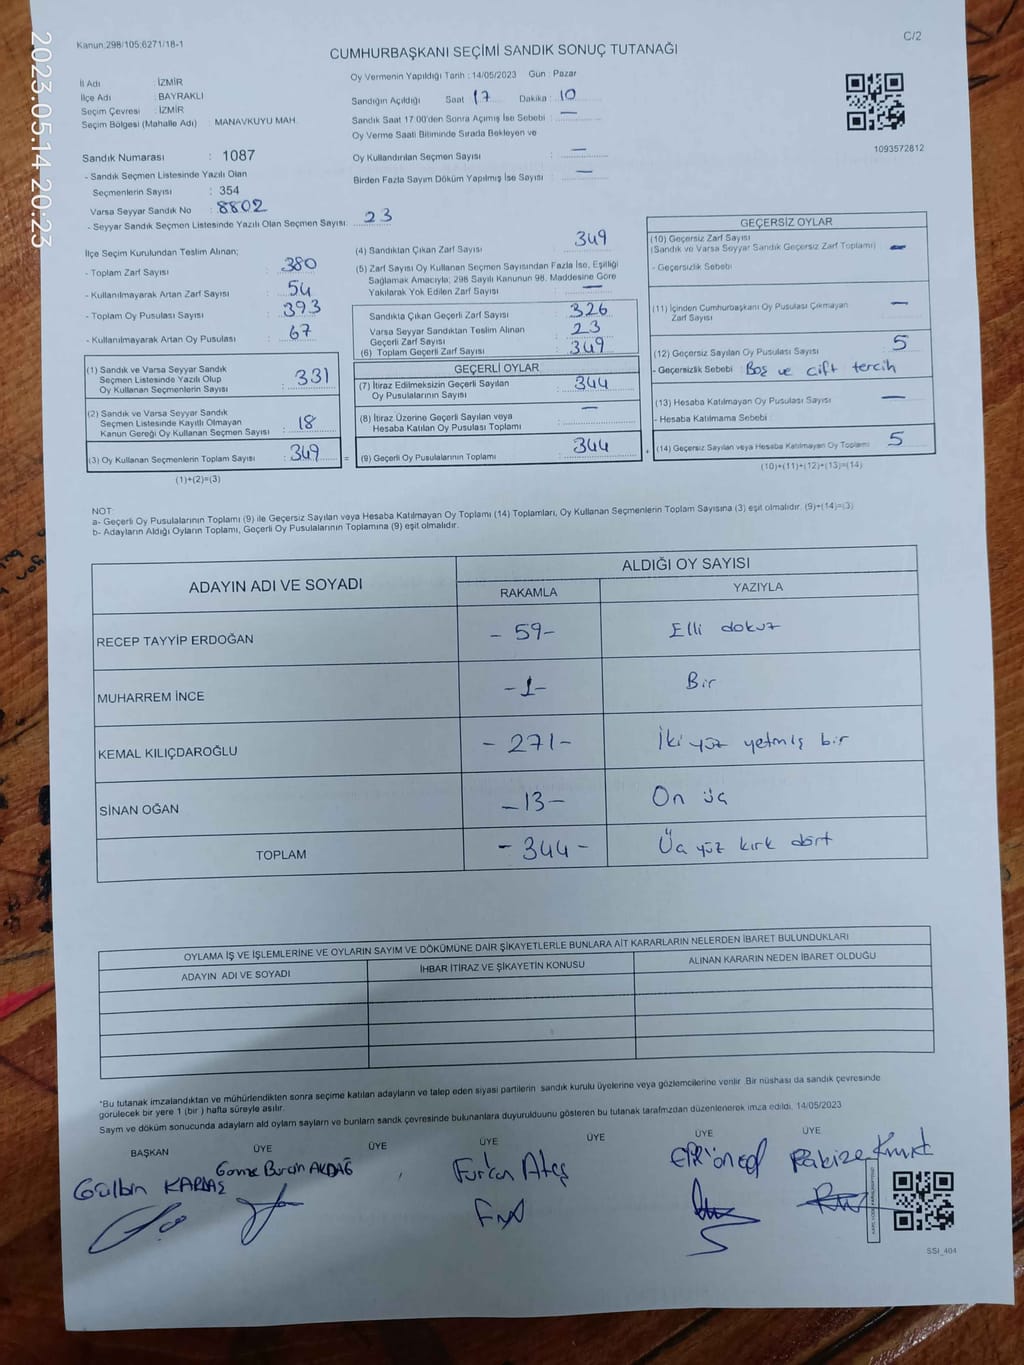 2023.05.14 20:23
Kanun:298/105;6271/18-1
C/2
CUMHURBAŞKANI SEÇİMİ SANDIK SONUÇ TUTANAĞI
İl Adı : İZMİR
İlçe Adı : BAYRAKLI
Seçim Çevresi : İZMİR
Seçim Bölgesi (Mahalle Adı) MANAVKUYU MAH.
Sandık Numarası : 1087
- Sandık Seçmen Listesinde Yazılı Olan
Seçmenlerin Sayısı : 354
Varsa Seyyar Sandık No : 8802
- Seyyar Sandık Seçmen Listesinde Yazılı Olan Seçmen Sayısı: 23
Oy Vermenin Yapıldığı Tarih : 14/05/2023 Gün : Pazar
Sandığın Açıldığı Saat 17 Dakika : 10
Sandık Saat 17:00'den Sonra Açımış İse Sebebi : —
Oy Verme Saati Bitiminde Sırada Bekleyen ve
Oy Kullandırılan Seçmen Sayısı : —
Birden Fazla Sayım Döküm Yapılmış İse Sayısı : —
1093572812
İlçe Seçim Kurulundan Teslim Alınan;
- Toplam Zarf Sayısı : 380
- Kullanılmayarak Artan Zarf Sayısı : 54
- Toplam Oy Pusulası Sayısı : 393
- Kullanılmayarak Artan Oy Pusulası : 67
(1) Sandık ve Varsa Seyyar Sandık
Seçmen Listesinde Yazılı Olup
Oy Kullanan Seçmenlerin Sayısı : 331
(2) Sandık ve Varsa Seyyar Sandık
Seçmen Listesinde Kayıtlı Olmayan
Kanun Gereği Oy Kullanan Seçmen Sayısı : 18
(3) Oy Kullanan Seçmenlerin Toplam Sayısı : 349
(1)+(2)=(3)
(4) Sandıktan Çıkan Zarf Sayısı : 349
(5) Zarf Sayısı Oy Kullanan Seçmen Sayısından Fazla İse, Eşitliği
Sağlamak Amacıyla; 298 Sayılı Kanunun 98. Maddesine Göre
Yakılarak Yok Edilen Zarf Sayısı : —
Sandıkta Çıkan Geçerli Zarf Sayısı : 326
Varsa Seyyar Sandıktan Teslim Alınan
Geçerli Zarf Sayısı : 23
(6) Toplam Geçerli Zarf Sayısı : 349
GEÇERLİ OYLAR
(7) İtiraz Edilmeksizin Geçerli Sayılan
Oy Pusulalarının Sayısı : 344
(8) İtiraz Üzerine Geçerli Sayılan veya
Hesaba Katılan Oy Pusulası Toplamı : —
= (9) Geçerli Oy Pusulalarının Toplamı : 344
GEÇERSİZ OYLAR
(10) Geçersiz Zarf Sayısı
(Sandık ve Varsa Seyyar Sandık Geçersiz Zarf Toplamı) —
- Geçersizlik Sebebi
(11) İçinden Cumhurbaşkanı Oy Pusulası Çıkmayan
Zarf Sayısı —
(12) Geçersiz Sayılan Oy Pusulası Sayısı : 5
- Geçersizlik Sebebi : Boş ve çift tercih
(13) Hesaba Katılmayan Oy Pusulası Sayısı : —
- Hesaba Katılmama Sebebi :
+ (14) Geçersiz Sayılan veya Hesaba Katılmayan Oy Toplamı : 5
(10)+(11)+(12)+(13)=(14)
NOT:
a- Geçerli Oy Pusulalarının Toplamı (9) ile Geçersiz Sayılan veya Hesaba Katılmayan Oy Toplamı (14) Toplamları, Oy Kullanan Seçmenlerin Toplam Sayısına (3) eşit olmalıdır. (9)+(14)=(3)
b- Adayların Aldığı Oyların Toplamı, Geçerli Oy Pusulalarının Toplamına (9) eşit olmalıdır.
ADAYIN ADI VE SOYADI ALDIĞI OY SAYISI
RAKAMLA YAZIYLA
RECEP TAYYİP ERDOĞAN - 59 - Elli dokuz
MUHARREM İNCE - 1 - Bir
KEMAL KILIÇDAROĞLU - 271 - İki yüz yetmiş bir
SİNAN OĞAN - 13 - On üç
TOPLAM - 344 - Üç yüz kırk dört
OYLAMA İŞ VE İŞLEMLERİNE VE OYLARIN SAYIM VE DÖKÜMÜNE DAİR ŞİKAYETLERLE BUNLARA AİT KARARLARIN NELERDEN İBARET BULUNDUKLARI
ADAYIN ADI VE SOYADI İHBAR İTİRAZ VE ŞİKAYETİN KONUSU ALINAN KARARIN NEDEN İBARET OLDUĞU
"Bu tutanak imzalandıktan ve mühürlendikten sonra seçime katılan adayların ve talep eden siyasi partilerin sandık kurulu üyelerine veya gözlemcilerine verilir. Bir nüshası da sandık çevresinde
görülecek bir yere 1 (bir ) hafta süreyle asılır.
Saym ve döküm sonucunda adaylarn ald oylarn saylarn ve bunlarn sandk çevresinde bulunanlara duyurulduunu gösteren bu tutanak tarafmzdan düzenlenerek imza edildi. 14/05/2023
BAŞKAN ÜYE ÜYE ÜYE ÜYE ÜYE ÜYE
Gülbin Burcin AKDAĞ Furkan Ateş
SSI_404